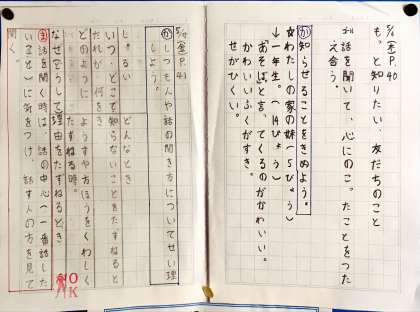 5/14 金 P.40
も。と知りたい、友だちのこと
ゴール話を聞いて、心にのこったことをつた
え合う。
か 知らせることをきめよう。
☆わたしの家の妹(5ぴょう)
↓一年生。(14びょう)
「あそぼ」と言ってくるのがかわいい。
かわいいふくがすき。
せがひくい。
5/17 金 P.41
か しつ もんや話の聞き方についてせい理
しよう。
しゅるい どんなとき
いつ、どこで 知らないことをたずねると
だれが、何を き
どのように ようすや方ほうをくわしく
たずねる時。
なぜ、どうして 理由をたずねるとき
ま 話を聞く時は、話の中心(一番話した
い事)に気をつけ、話す人の方を見て
聞く。
OK